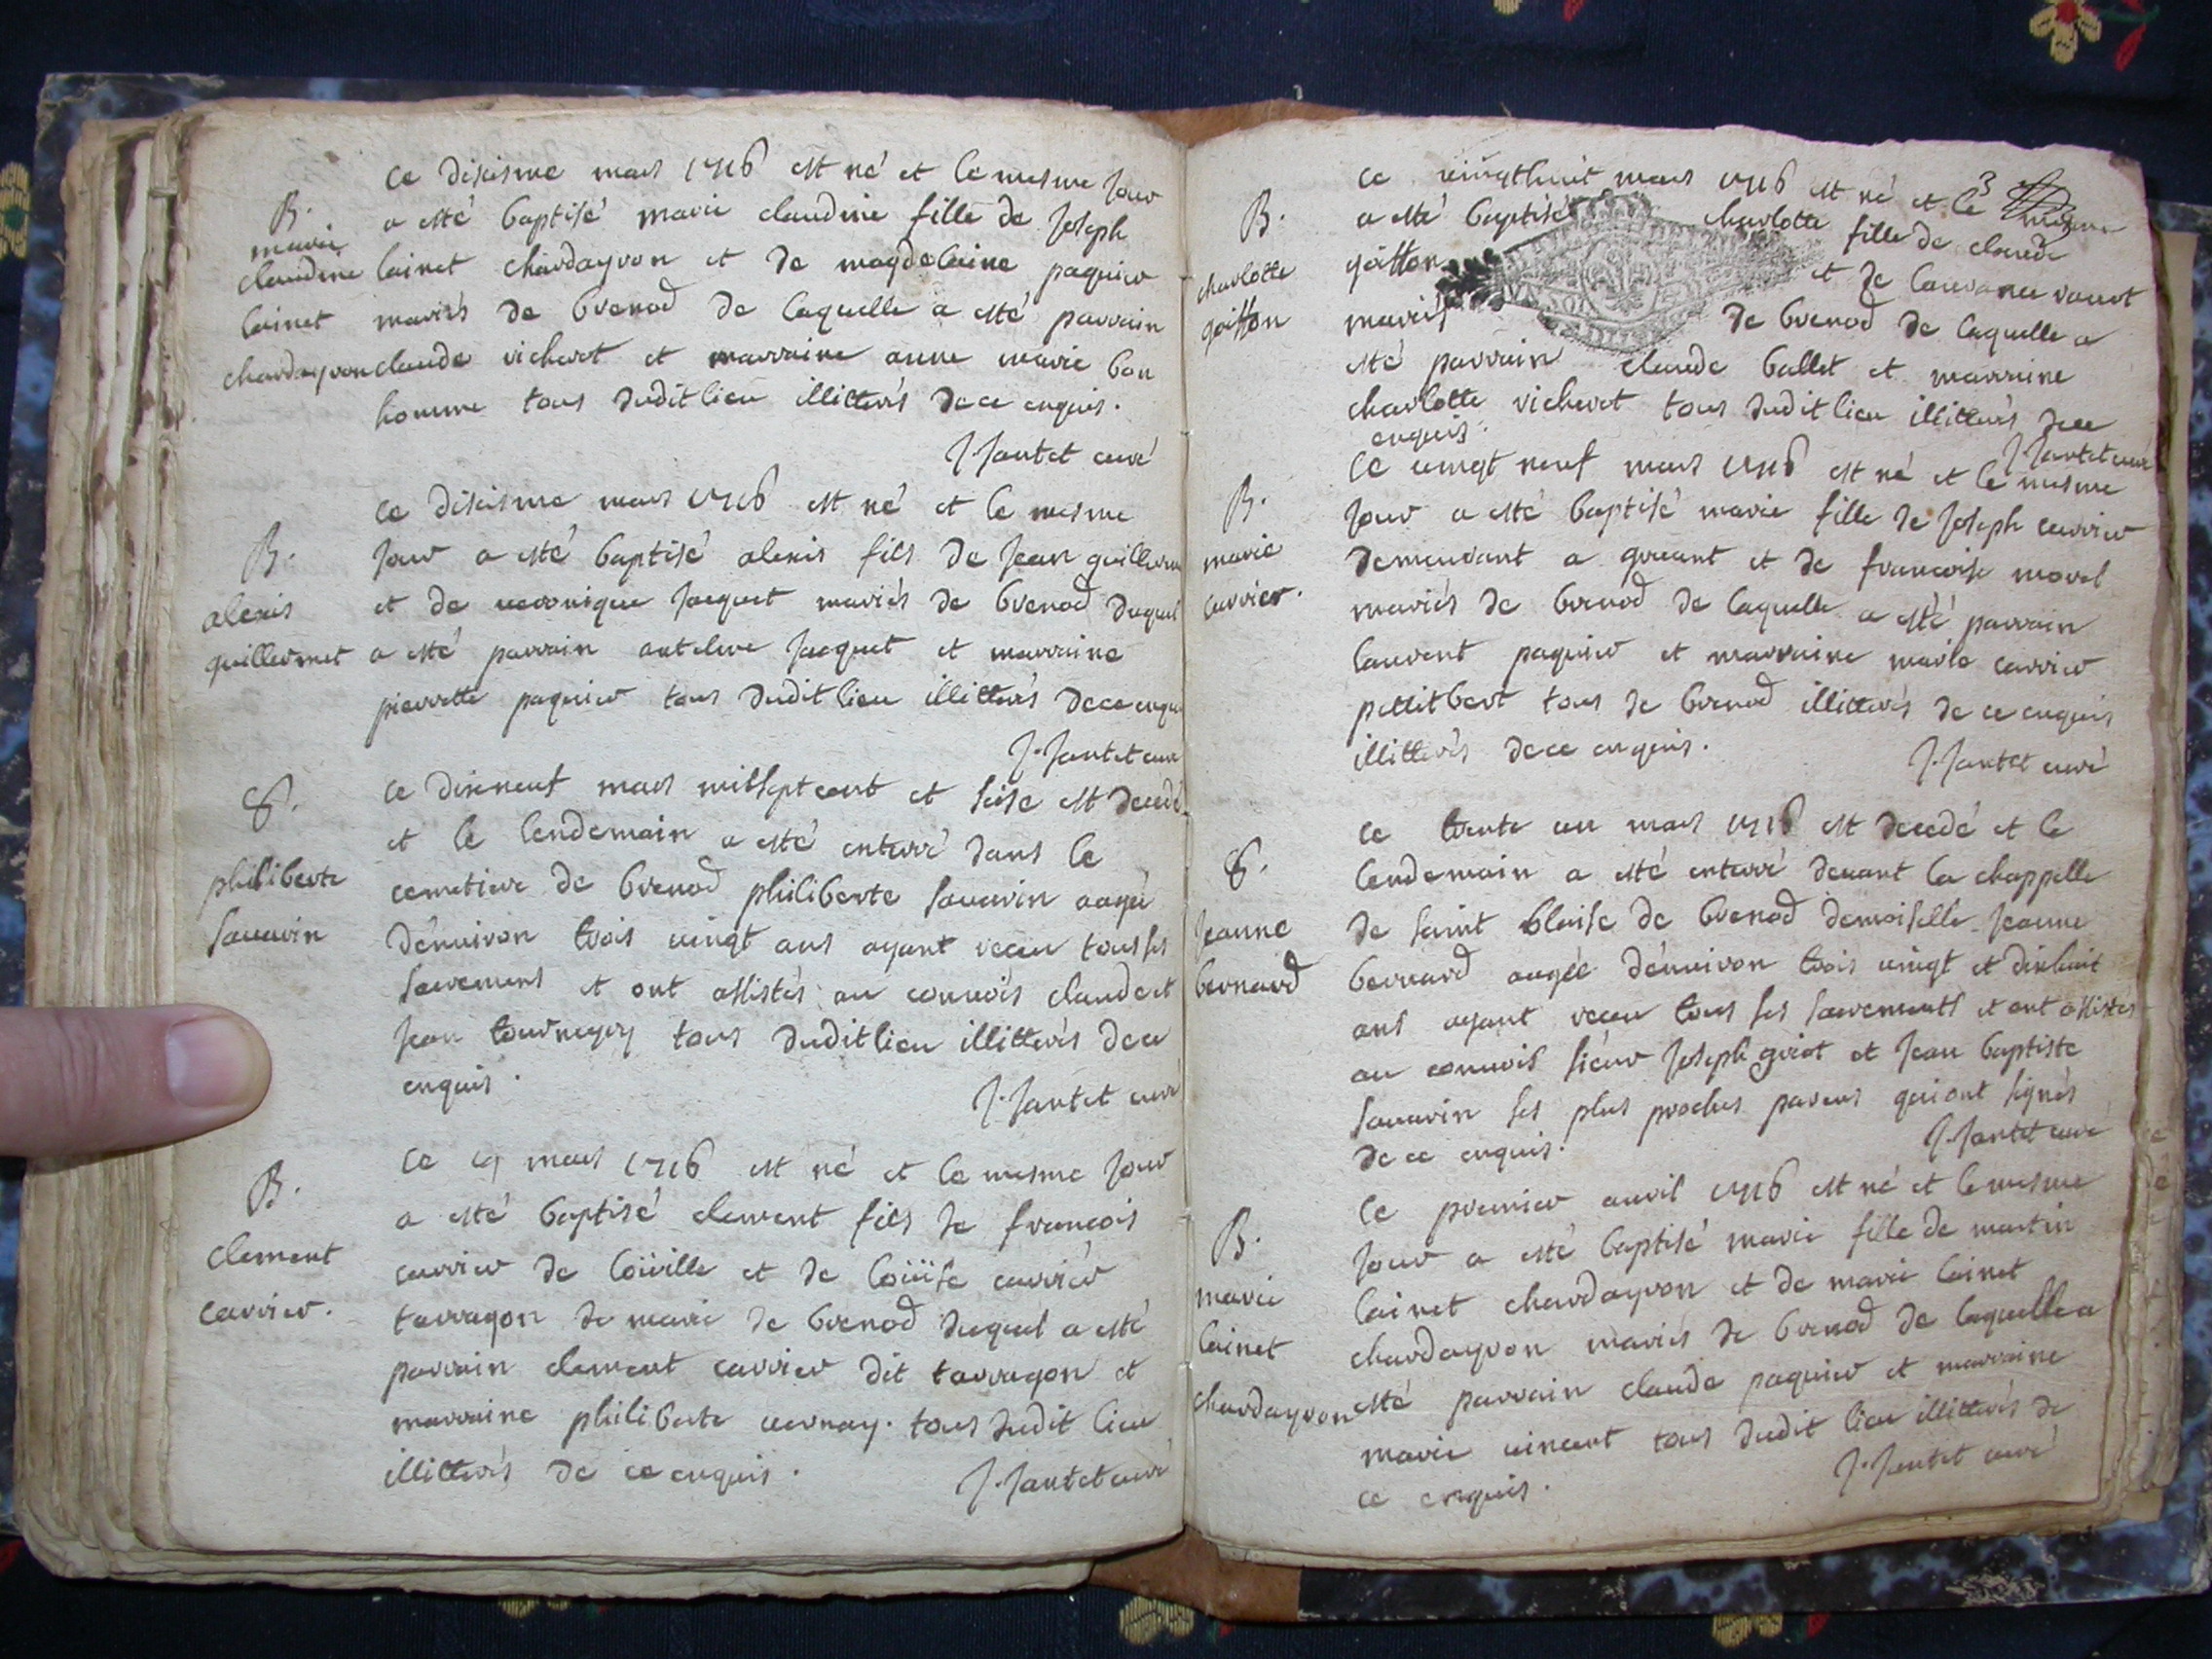 ce disisme mars 1716 est né et le mesme jour
B. a esté baptisé marie claudine fille de joseph
marie
claudine lainet chardayron et de magdelaine paquier
lainet mariés de brenod de laquelle a esté parrain
chardayron claude vicherot et marraine anne marie bon
homme tous dudit lieu illitterés de ce enquis.
J. Jantet curé
ce disisme mars 1716 est né et le mesme
B. jour a esté baptisé alexis fils de jean guillermet
alexis et de ueronique jacquet mariés de brenod duquel
guillermet a esté parrain antelme jacquet et marraine
pierrette paquier tous dudit lieu illitterés de ce enquis
J. Jantet curé
S. ce dixneuf mars mil sept cent et seise est decedé
et le lendemain a esté enterré dans le
philiberte cemetiere de brenod philiberte sauarin aagée
sauarin d'enuiron trois uingt ans ayant receu tous ses
sacremens et ont assistés au conuois claude et
jean tournayry tous dudit lieu illitterés de ce
enquis.
J. Jantet curé
ce 19 mars 1716 est né et le mesme jour
B. a esté baptisé clement fils de francois
clement carrier de loüille et de loüise carrier
carrier. tarragon de marie de brenod duquel a esté
parrain clement carrier dit tarragon et
marraine philiberte uernay. tous dudit lieu
illitterés de ce enquis.
J. Jantet curé
ce uingthuit mars 1716 est né et le 3
B. a esté baptisé charlotte fille de claude
charlotte goitton et de laurance
goitton mariés de brenod de laquelle a
esté parrain claude ballet et marraine
charlotte vicherot tous dudit lieu illitterés de ce
enquis.
J. Jantet curé
ce uingt neuf mars 1716 est né et le mesme
B. jour a esté baptisé marie fille de joseph carrier
marie demeurant a et de francoise morel
carrier. mariés de brenod de laquelle a esté parrain
laurent paquier et marraine marie carrier
pettitbert tous de brenod illitterés de ce enquis
illitterés de ce enquis.
J. Jantet curé
ce trente un mars 1716 est decedé et le
S. lendemain a esté enterré deuant la chappelle
jeanne de saint blaise de brenod demoiselle jeanne
bernard bernard aagée d'enuiron trois uingt et dixhuit
ans ayant receu tous ses sacrements et ont assistés
au conuois sieur joseph goiot et jean baptiste
sauarin ses plus proches parens qui ont signés
de ce enquis.
J. Jantet curé
ce premier auril 1716 est né et le mesme
B. jour a esté baptisé marie fille de martin
marie lainet chardayron et de marie lainet
lainet chardayron mariés de brenod de laquelle a
chardayron esté parrain claude paquier et marraine
marie uincent tous dudit lieu illitterés de
ce enquis.
J. Jantet curé